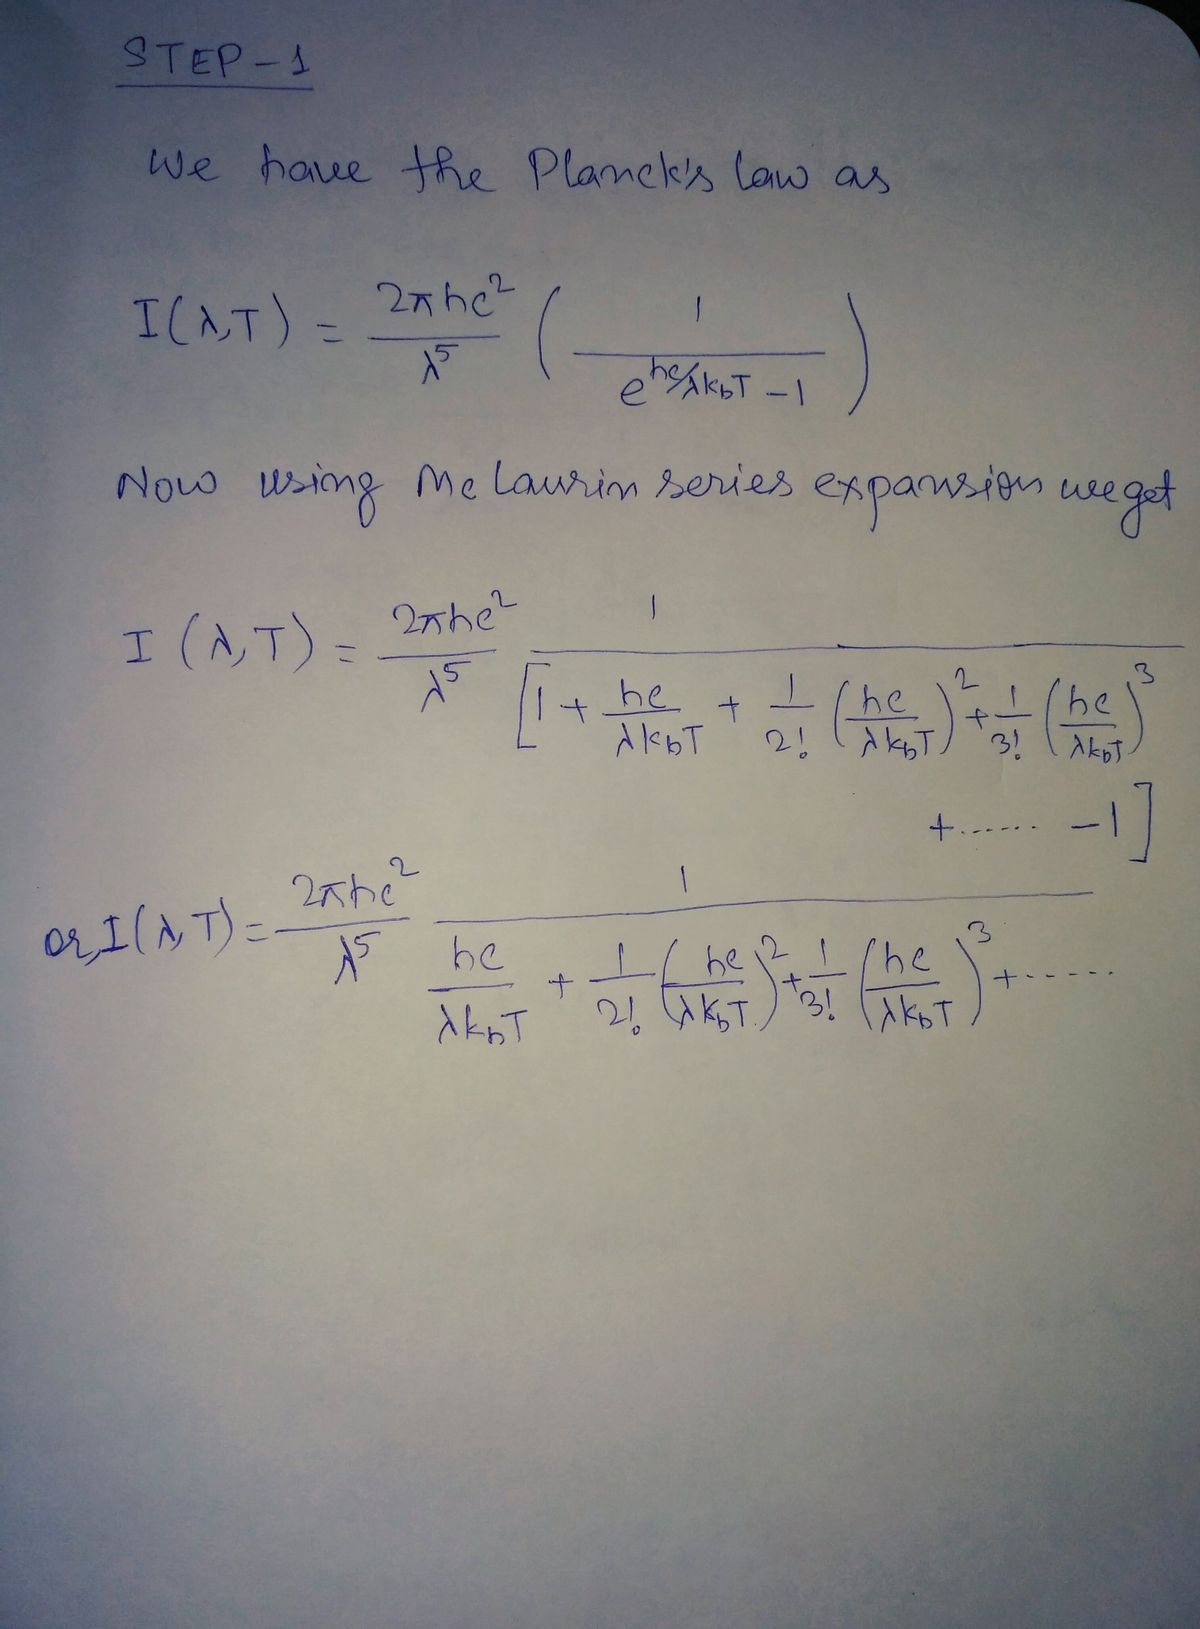 STEP-1
We have the Planck's law as
I(λ,T) = 2πhc²/λ⁵ (1/(e^(hc/λk_bT) - 1))
Now using McLaurin series expansion we get
I(λ,T) = 2πhc²/λ⁵ 1/[1 + hc/λk_bT + 1/2! (hc/λk_bT)² + 1/3! (hc/λk_bT)³
+...... -1]
or, I(λ,T) = 2πhc²/λ⁵ 1/(hc/λk_bT + 1/2! (hc/λk_bT)² + 1/3! (hc/λk_bT)³ +......)